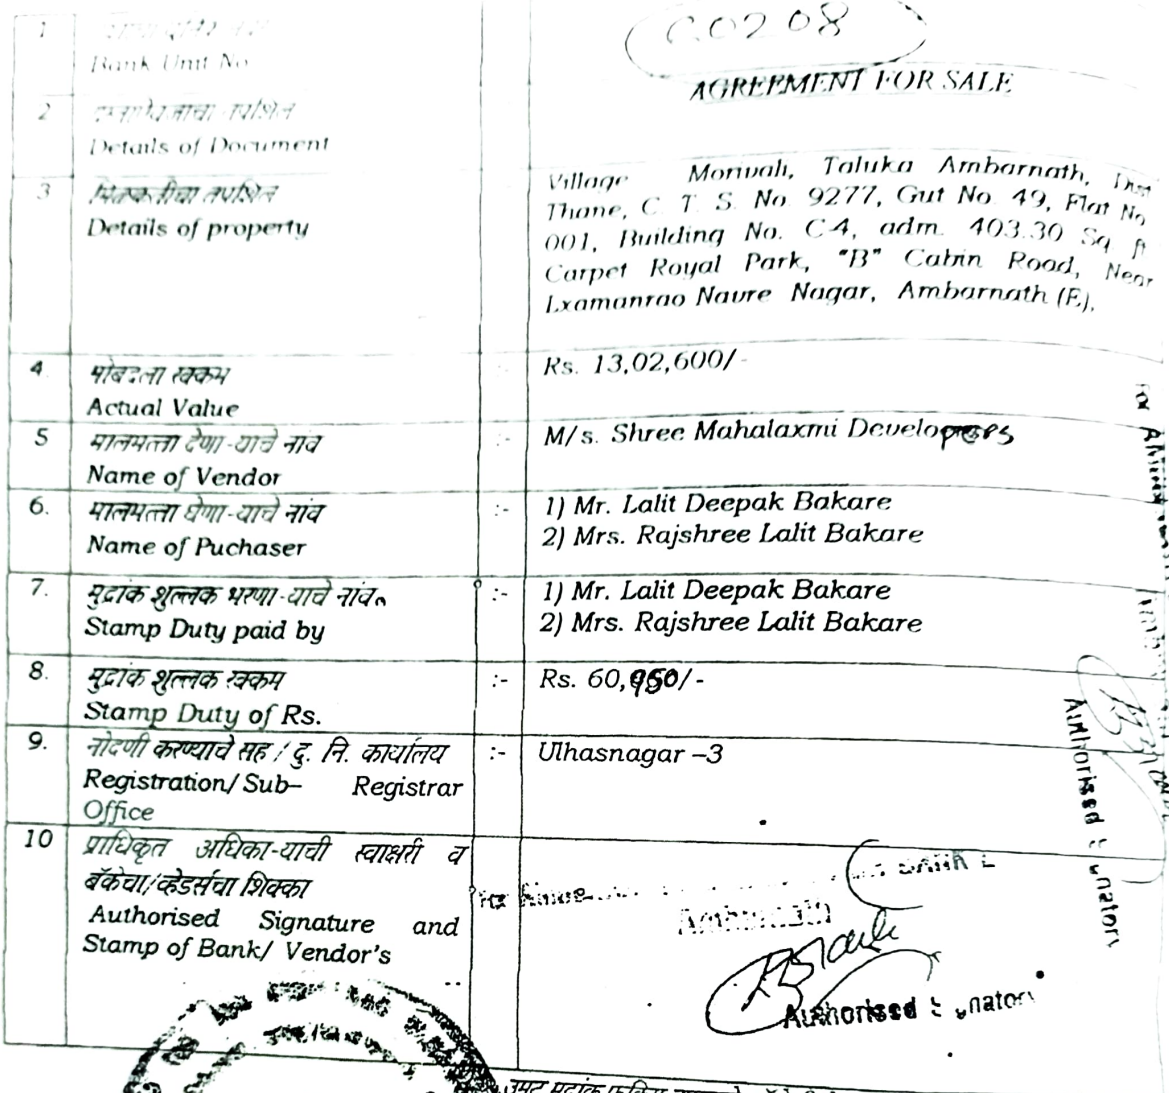 1
Bank Unit No
C0208
AGREEMENT FOR SALE
2
दस्ताऐवजाचा तपशिल
Details of Document
3
मिळकतीचा तपशिल
Details of property
Village Morivali, Taluka Ambarnath, Dist
Thane, C. T. S. No. 9277, Gut No. 49, Flat No
001, Building No. C-4, adm. 403.30 Sq. ft
Carpet Royal Park, "B" Cabin Road, Near
Lxamanrao Navre Nagar, Ambarnath (E),
4. मोबदला रक्कम
Actual Value
:- Rs. 13,02,600/-
5 मालमत्ता देणा-याचे नांव
Name of Vendor
:- M/s. Shree Mahalaxmi Developers
6. मालमत्ता घेणा-याचे नांव
Name of Puchaser
:- 1) Mr. Lalit Deepak Bakare
2) Mrs. Rajshree Lalit Bakare
7. मुद्रांक शुल्लक भरणा-याचे नांव
Stamp Duty paid by
:- 1) Mr. Lalit Deepak Bakare
2) Mrs. Rajshree Lalit Bakare
8. मुद्रांक शुल्लक रक्कम
Stamp Duty of Rs.
:- Rs. 60,950/-
9. नोदणी करण्याचे सह / दु. नि. कार्यालय
Registration/Sub– Registrar
Office
:- Ulhasnagar –3
10 प्राधिकृत अधिका-याची स्वाक्षरी व
बॅकेचा/व्हेडर्सचा शिक्का
Authorised Signature and
Stamp of Bank/ Vendor's
For BANK L
Ambarnath
Authorised Signatory
For
Authorised Signatory